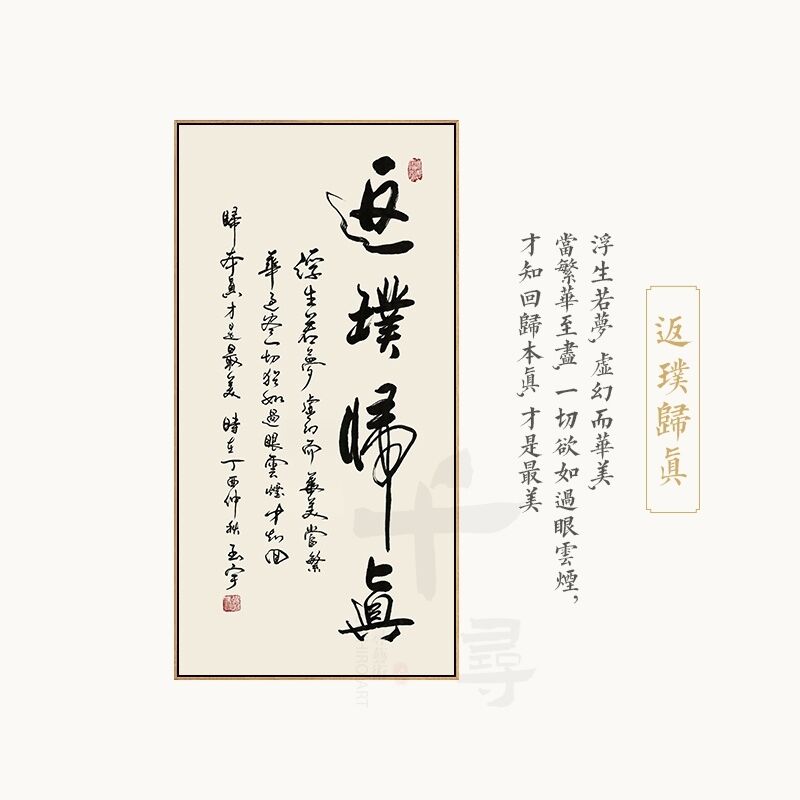 返璞歸眞
浮生若夢,虛幻而華美,
當繁華至盡,一切欲如過眼雲煙,
才知回歸本眞,才是最美
返璞歸眞
浮生若夢虛幻而華美當繁
華至盡一切猶如過眼雲煙才知回
歸本眞才是最美 時在丁酉仲秋 玉宇
千
尋